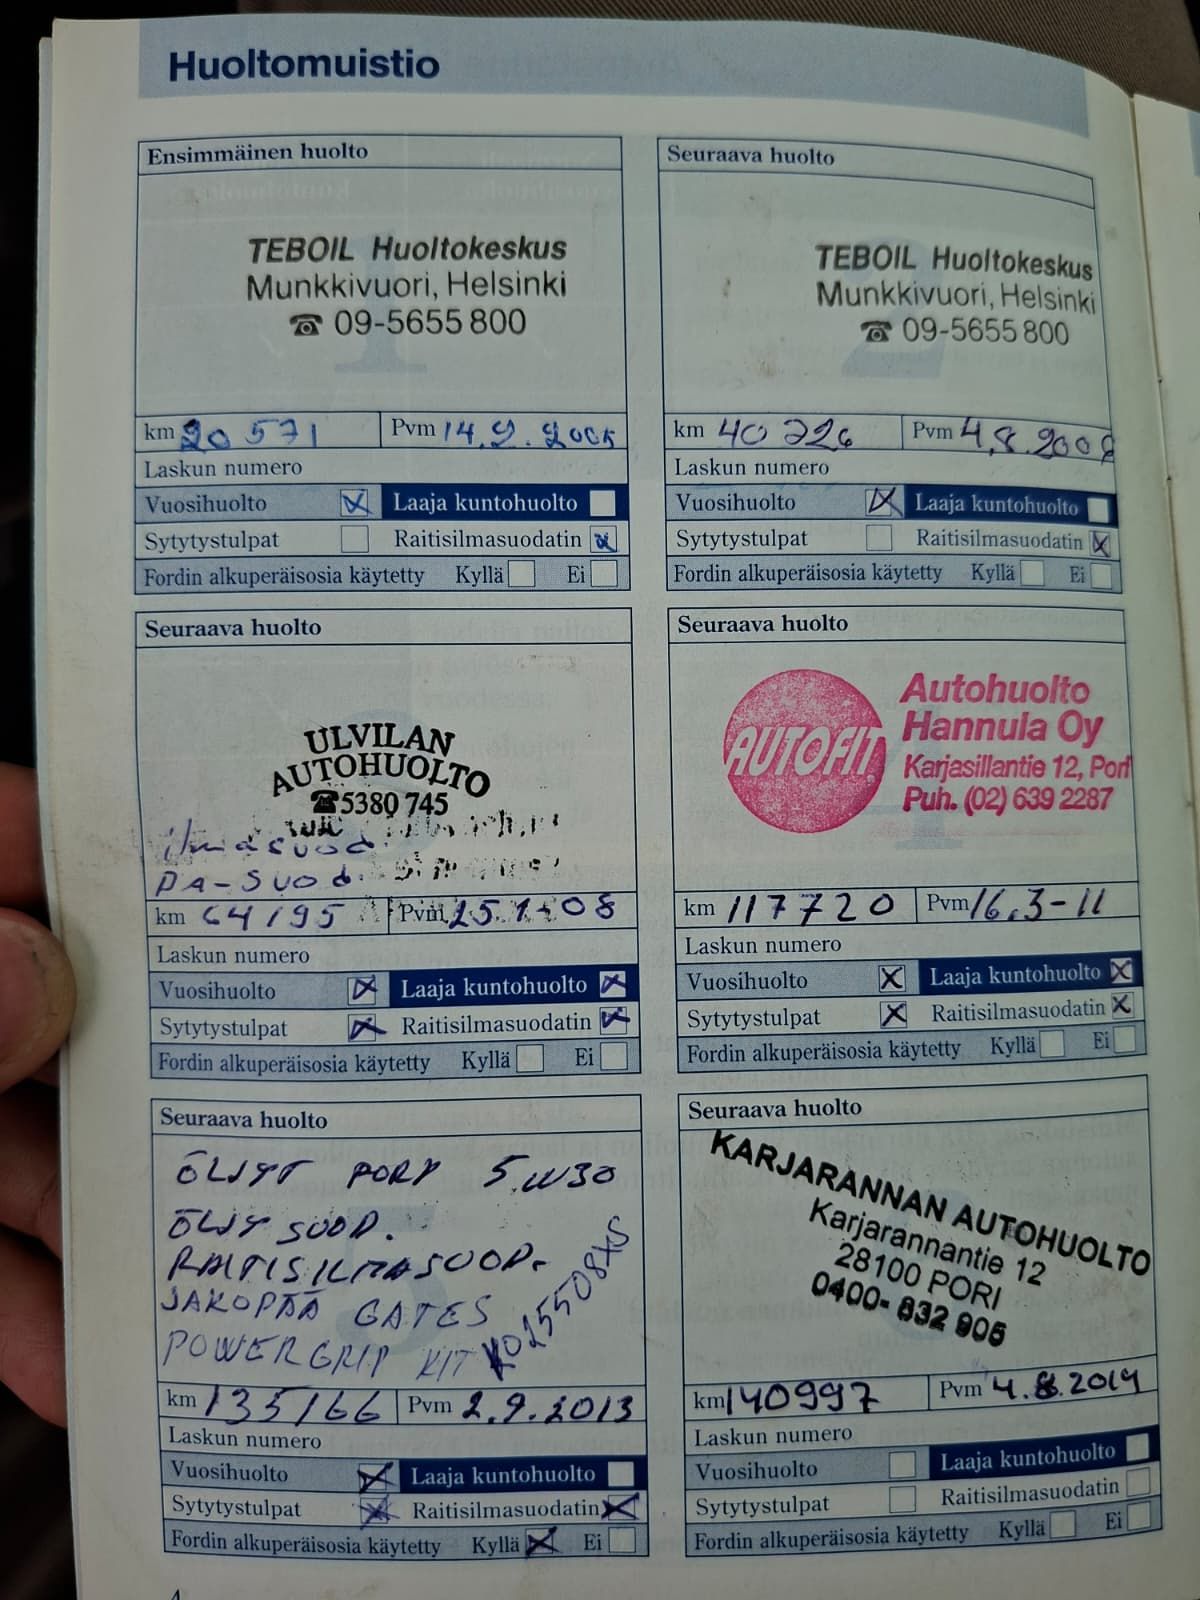 Huoltomuistio
Ensimmäinen huolto
TEBOIL Huoltokeskus
Munkkivuori, Helsinki
☎ 09-5655 800
km 20 571 Pvm 14.9.2005
Laskun numero
Vuosihuolto Laaja kuntohuolto
Sytytystulpat Raitisilmasuodatin
Fordin alkuperäisosia käytetty Kyllä Ei
Seuraava huolto
TEBOIL Huoltokeskus
Munkkivuori, Helsinki
☎ 09-5655 800
km 40 726 Pvm 4.8.2006
Laskun numero
Vuosihuolto Laaja kuntohuolto
Sytytystulpat Raitisilmasuodatin
Fordin alkuperäisosia käytetty Kyllä Ei
Seuraava huolto
ULVILAN
AUTOHUOLTO
☎5380 745
ilmasuod.
PA-SUOd.
km 64195 Pvm 25.1-08
Laskun numero
Vuosihuolto Laaja kuntohuolto
Sytytystulpat Raitisilmasuodatin
Fordin alkuperäisosia käytetty Kyllä Ei
Seuraava huolto
AUTOFIT
Autohuolto
Hannula Oy
Karjasillantie 12, Pori
Puh. (02) 639 2287
km 117720 Pvm 16.3-11
Laskun numero
Vuosihuolto Laaja kuntohuolto
Sytytystulpat Raitisilmasuodatin
Fordin alkuperäisosia käytetty Kyllä Ei
Seuraava huolto
ÖLJYT FORD 5W30
ÖLJYSUOD.
RAITISILMASUOD.
JAKOPÄÄ GATES
POWERGRIP KIT K025508XS
km 135166 Pvm 2.9.2013
Laskun numero
Vuosihuolto Laaja kuntohuolto
Sytytystulpat Raitisilmasuodatin
Fordin alkuperäisosia käytetty Kyllä Ei
Seuraava huolto
KARJARANNAN AUTOHUOLTO
Karjarannantie 12
28100 PORI
0400- 832 906
km 140997 Pvm 4.8.2014
Laskun numero
Vuosihuolto Laaja kuntohuolto
Sytytystulpat Raitisilmasuodatin
Fordin alkuperäisosia käytetty Kyllä Ei